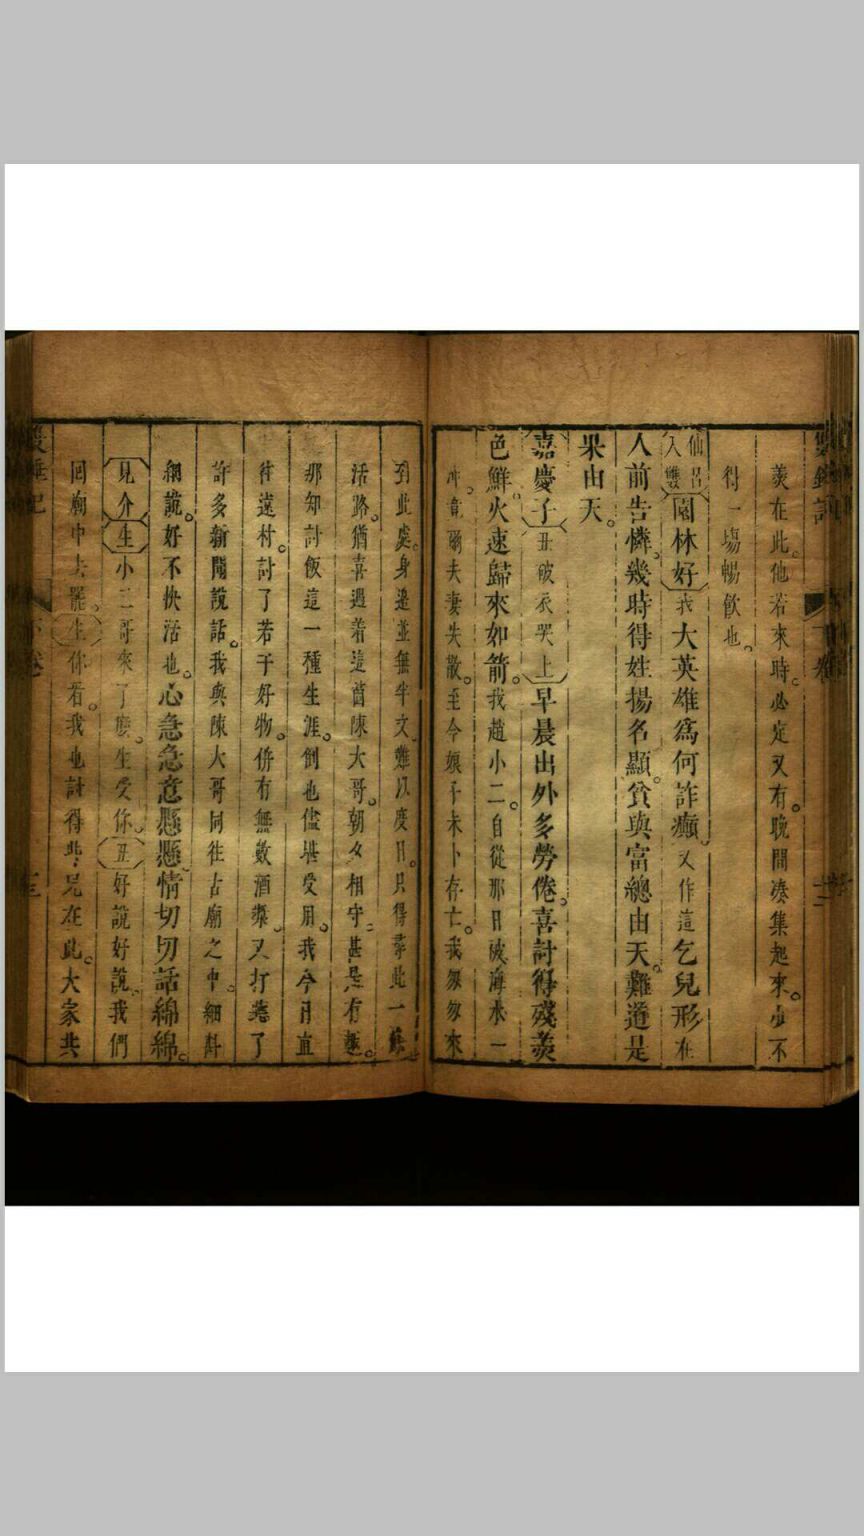 羮在此。他若來時。必定又有。晚間湊集起來。少不
得一場暢飲也。
仙呂入雙 園林好 我大英雄為何詐癲。又作這乞兒形在
人前告憐。幾時得姓揚名顯。貧與富總由天。難道是
果由天。
嘉慶子 丑破衣哭上 早晨出外多勞倦。喜討得殘羮
色鮮。火速歸來如箭。我趙小二。自從那日破海水一
冲。竟爾夫妻失散。至今娘子未卜存亡。我匆匆來
到此處。身邊並無半文。難以度日。只得靠此一條
活路。猶喜遇着這酋陳大哥。朝夕相守。甚是有趣。
那知討飯這一種生涯。倒也儘堪受用。我今日直
往遠村。討了若干好物。併有無數酒漿。又打聽了
許多新聞說話。我與陳大哥同往古廟之中。細斟
細說。好不快活也。心急急意懸懸。情切切話綿綿。
見介 生 小二哥來了麽。生受你。丑 好說好說。我們
回廟中去罷。生 你看。我也討得些兒在此。大家共
雙錘記 下卷